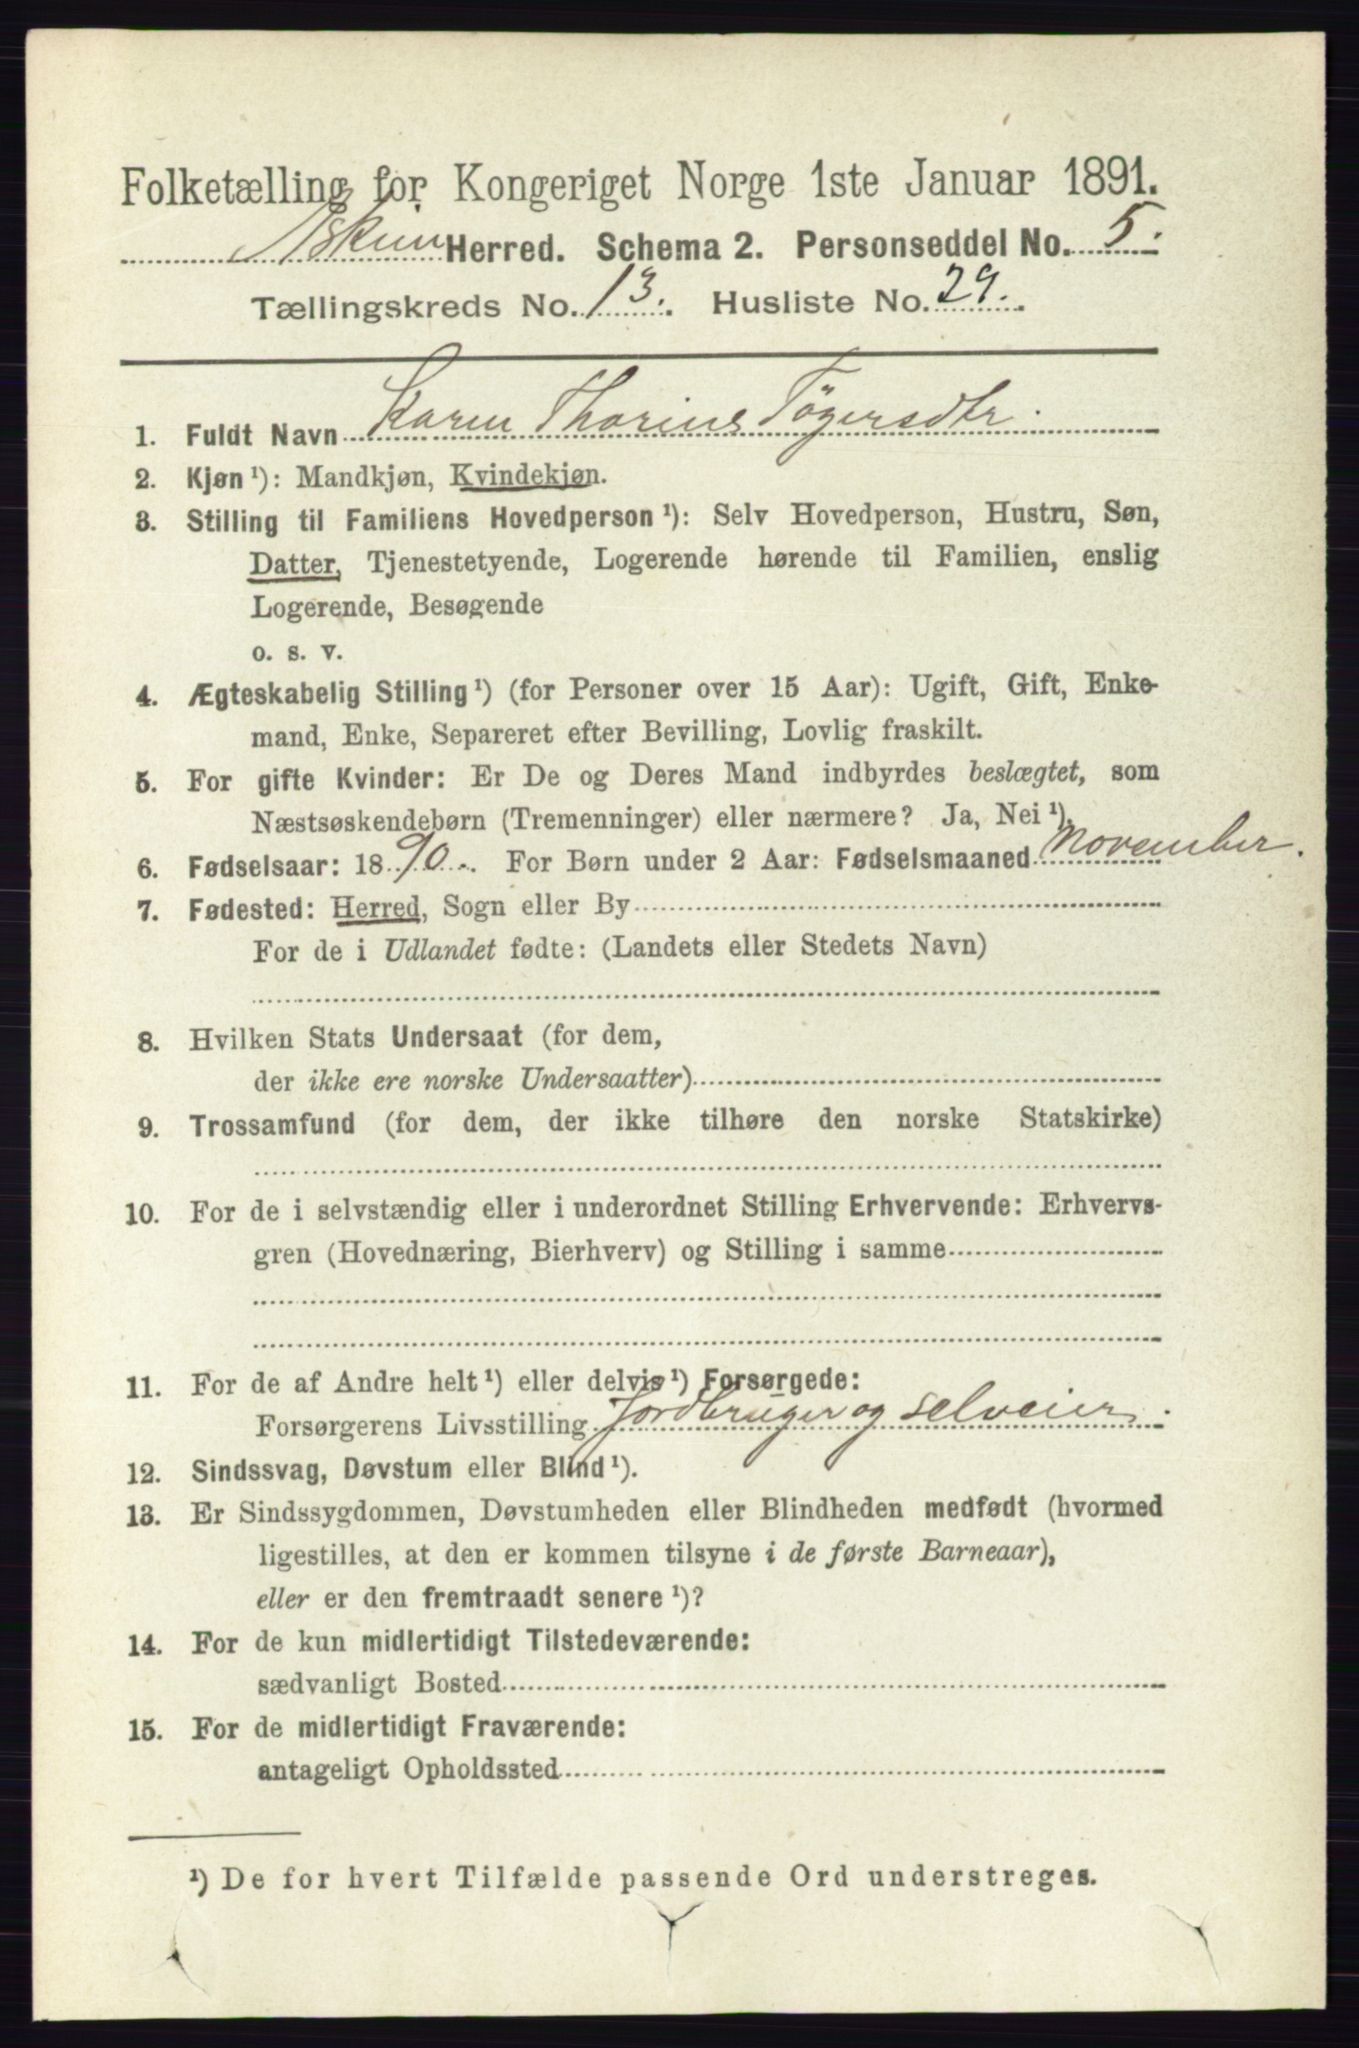 Folketælling for Kongeriget Norge 1ste Januar 1891.
Askim Herred. Schema 2. Personseddel No. 5.
Tællingskreds No. 13. Husliste No. 29.
1. Fuldt Navn Karen Thorine Tøgersdtr.
2. Kjøn ¹): Mandkjøn, Kvindekjøn.
3. Stilling til Familiens Hovedperson ¹): Selv Hovedperson, Hustru, Søn,
Datter, Tjenestetyende, Logerende hørende til Familien, enslig
Logerende, Besøgende
o. s. v.
4. Ægteskabelig Stilling ¹) (for Personer over 15 Aar): Ugift, Gift, Enke-
mand, Enke, Separeret efter Bevilling, Lovlig fraskilt.
5. For gifte Kvinder: Er De og Deres Mand indbyrdes beslægtet, som
Næstsøskendebørn (Tremenninger) eller nærmere? Ja, Nei ¹).
6. Fødselsaar: 1890. For Børn under 2 Aar: Fødselsmaaned November.
7. Fødested: Herred, Sogn eller By
For de i Udlandet fødte: (Landets eller Stedets Navn)
8. Hvilken Stats Undersaat (for dem,
der ikke ere norske Undersaatter)
9. Trossamfund (for dem, der ikke tilhøre den norske Statskirke)
10. For de i selvstændig eller i underordnet Stilling Erhvervende: Erhvervs-
gren (Hovednæring, Bierhverv) og Stilling i samme
11. For de af Andre helt ¹) eller delvis ¹) Forsørgede:
Forsørgerens Livsstilling Jordbruger og selveier.
12. Sindssvag, Døvstum eller Blind ¹).
13. Er Sindssygdommen, Døvstumheden eller Blindheden medfødt (hvormed
ligestilles, at den er kommen tilsyne i de første Barneaar),
eller er den fremtraadt senere ¹)?
14. For de kun midlertidigt Tilstedeværende:
sædvanligt Bosted
15. For de midlertidigt Fraværende:
antageligt Opholdssted
¹) De for hvert Tilfælde passende Ord understreges.